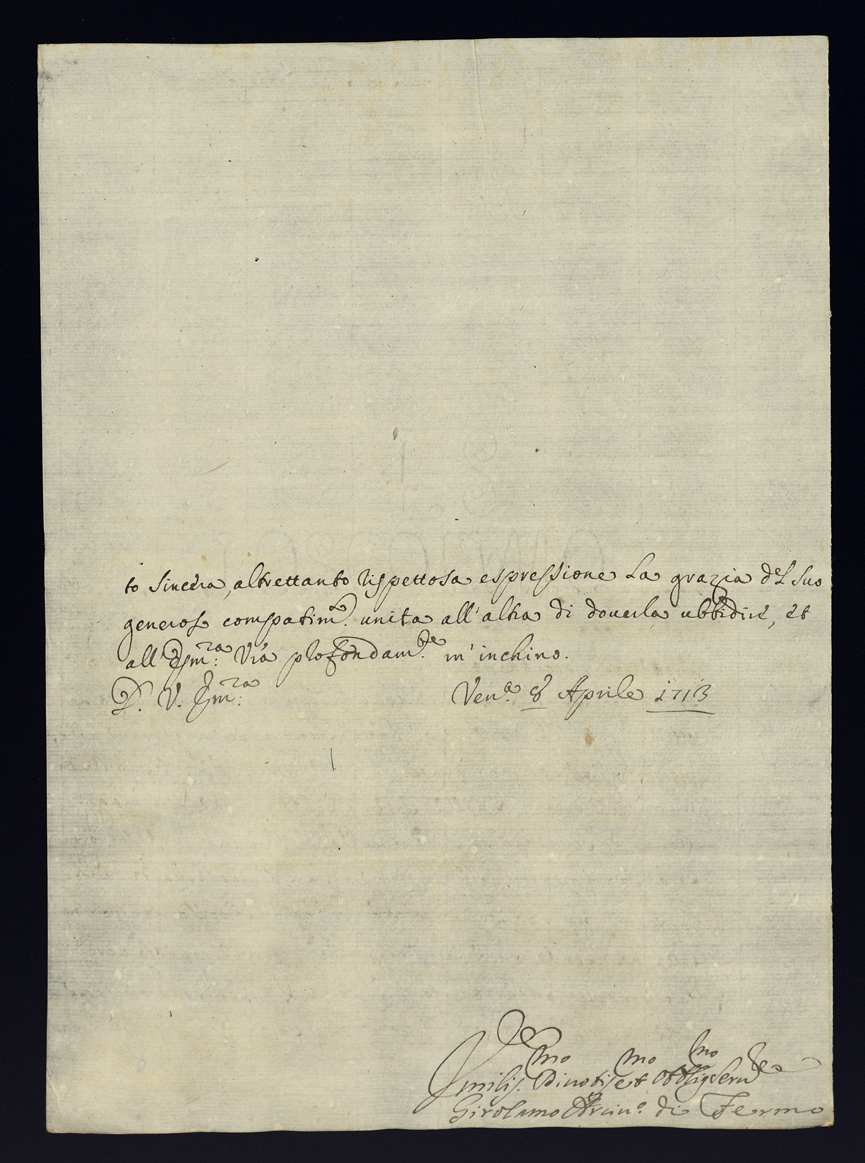 to sincera, altrettanto rispettosa espressione la grazia del suo
generoso compatim.to unita all'altra di douerla ubbidire, et
all'Em.za V.ra profondam.te m'inchino.
D. V. Em.za Ven.a 8 Aprile 1713
Umilis.mo Diuotis.mo et Obblig.mo Seru.re
Girolamo Arciu.o di Fermo